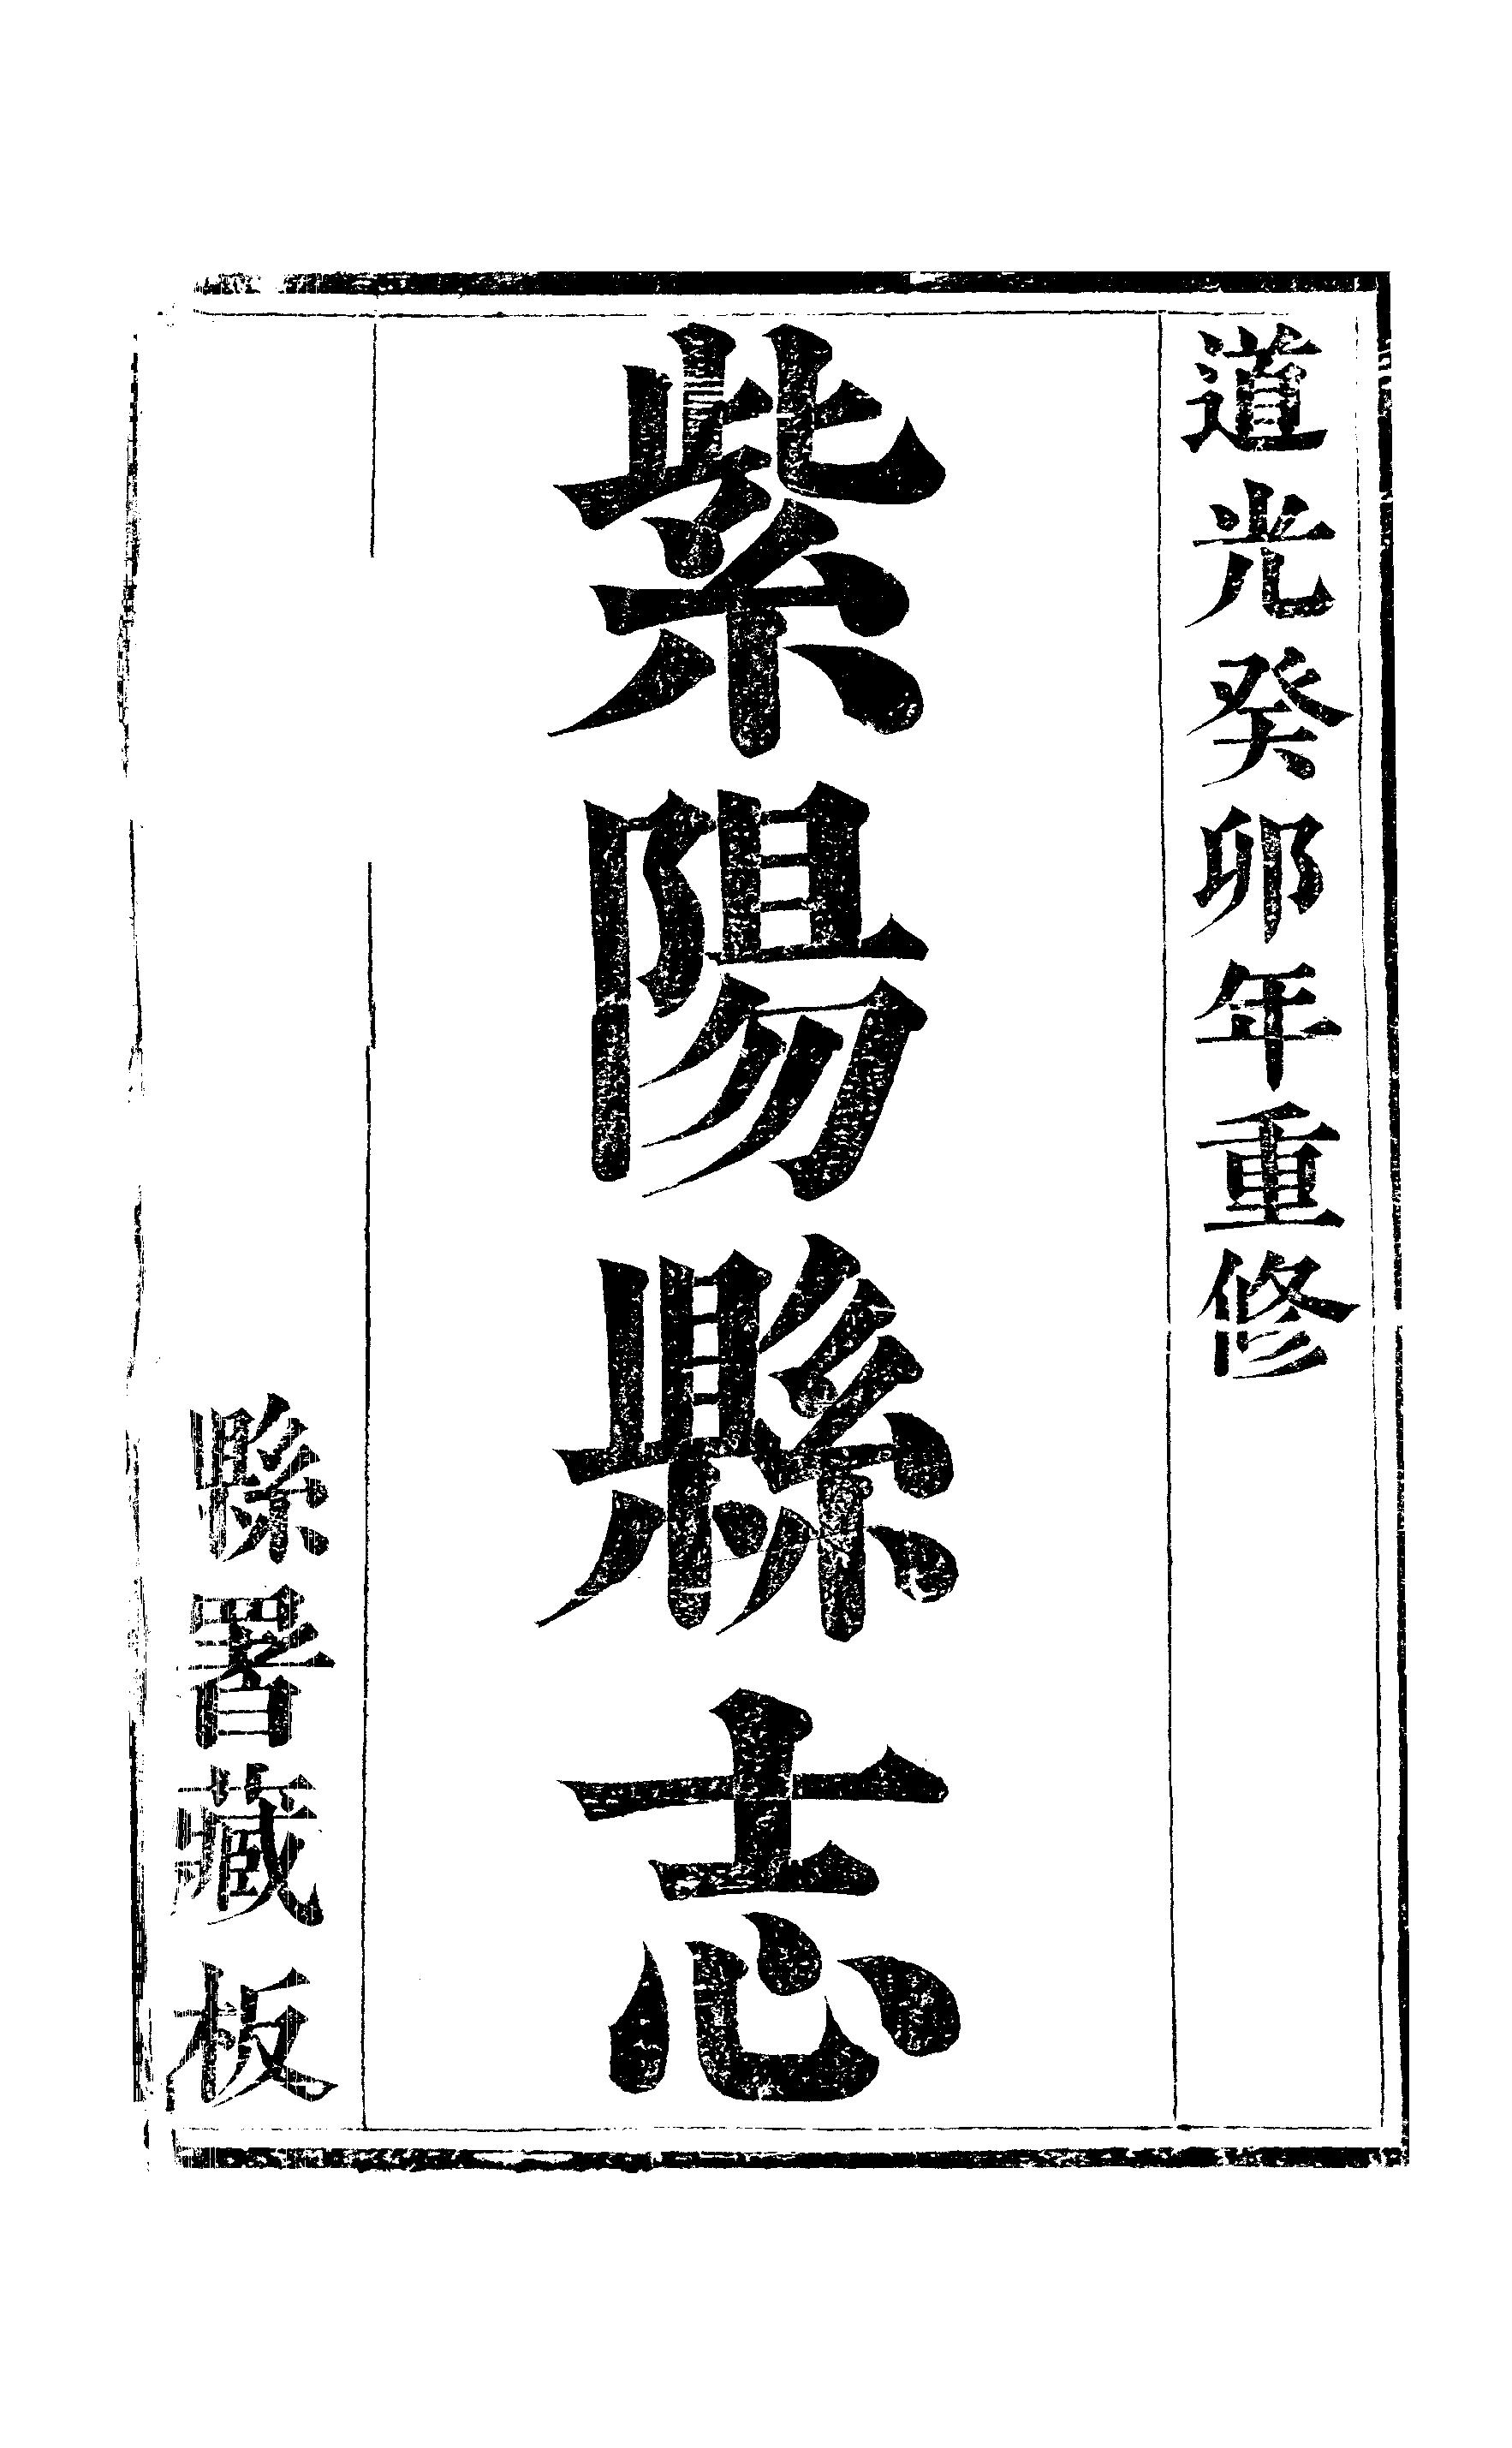 道光癸卯年重修
紫陽縣志
縣署藏板